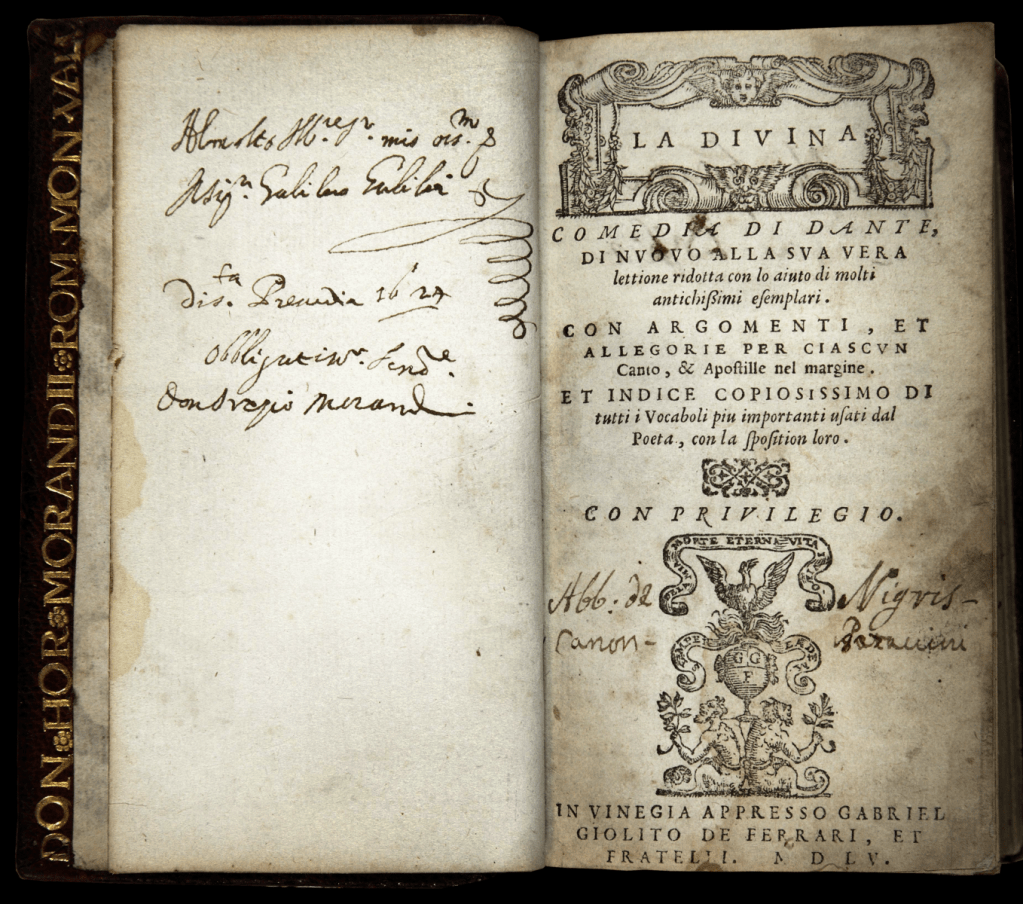 DON HOR MORANDII ROM MON VAL
Al molto Ill.re Sr. mio oss.mo
Il Sig.r Galileo Galilei
1624
Obbligatiss.o Ser.re
Don Oratio Morandi
LA DIVINA
COMEDIA DI DANTE,
DI NVOVO ALLA SVA VERA
lettione ridotta con lo aiuto di molti
antichißimi eſemplari.
CON ARGOMENTI, ET
ALLEGORIE PER CIASCVN
Canto, & Apoſtille nel margine.
ET INDICE COPIOSISSIMO DI
tutti i Vocaboli piu importanti uſati dal
Poeta, con la ſpoſition loro.
CON PRIVILEGIO.
DE LA MIA MORTE ETERNA VITA I VIVO
Abb: de Nigris-
Canon-
SEMPER EADEM
GG
F
IN VINEGIA APPRESSO GABRIEL
GIOLITO DE FERRARI, ET
FRATELLI. M D LV.